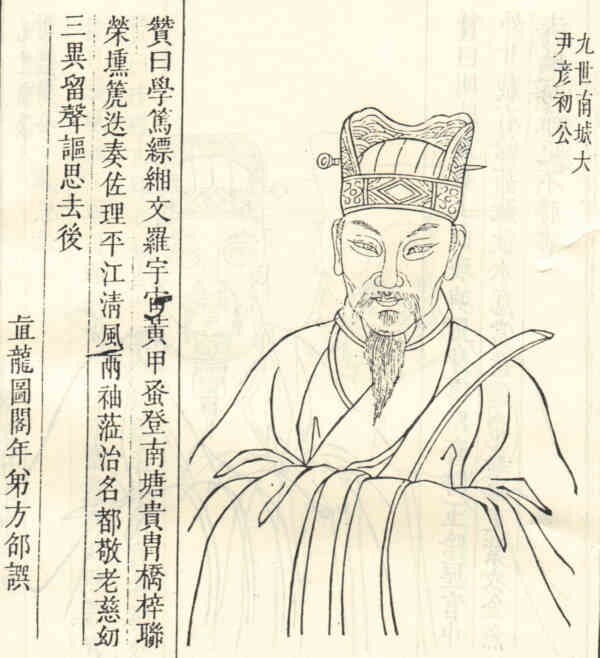 九世南城大
尹彥初公
贊曰學篤縹緗文羅宇宙黃甲蚤登南塘貴胄橋梓聯
榮壎箎迭奏佐理平江清風兩袖蒞治名都敬老慈幼
三異留聲謳思去後
直龍圖閣年弟方邰譔